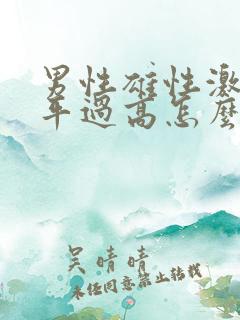 男性雄性激
年過高怎麼
吴晴晴
未经同意禁止转载